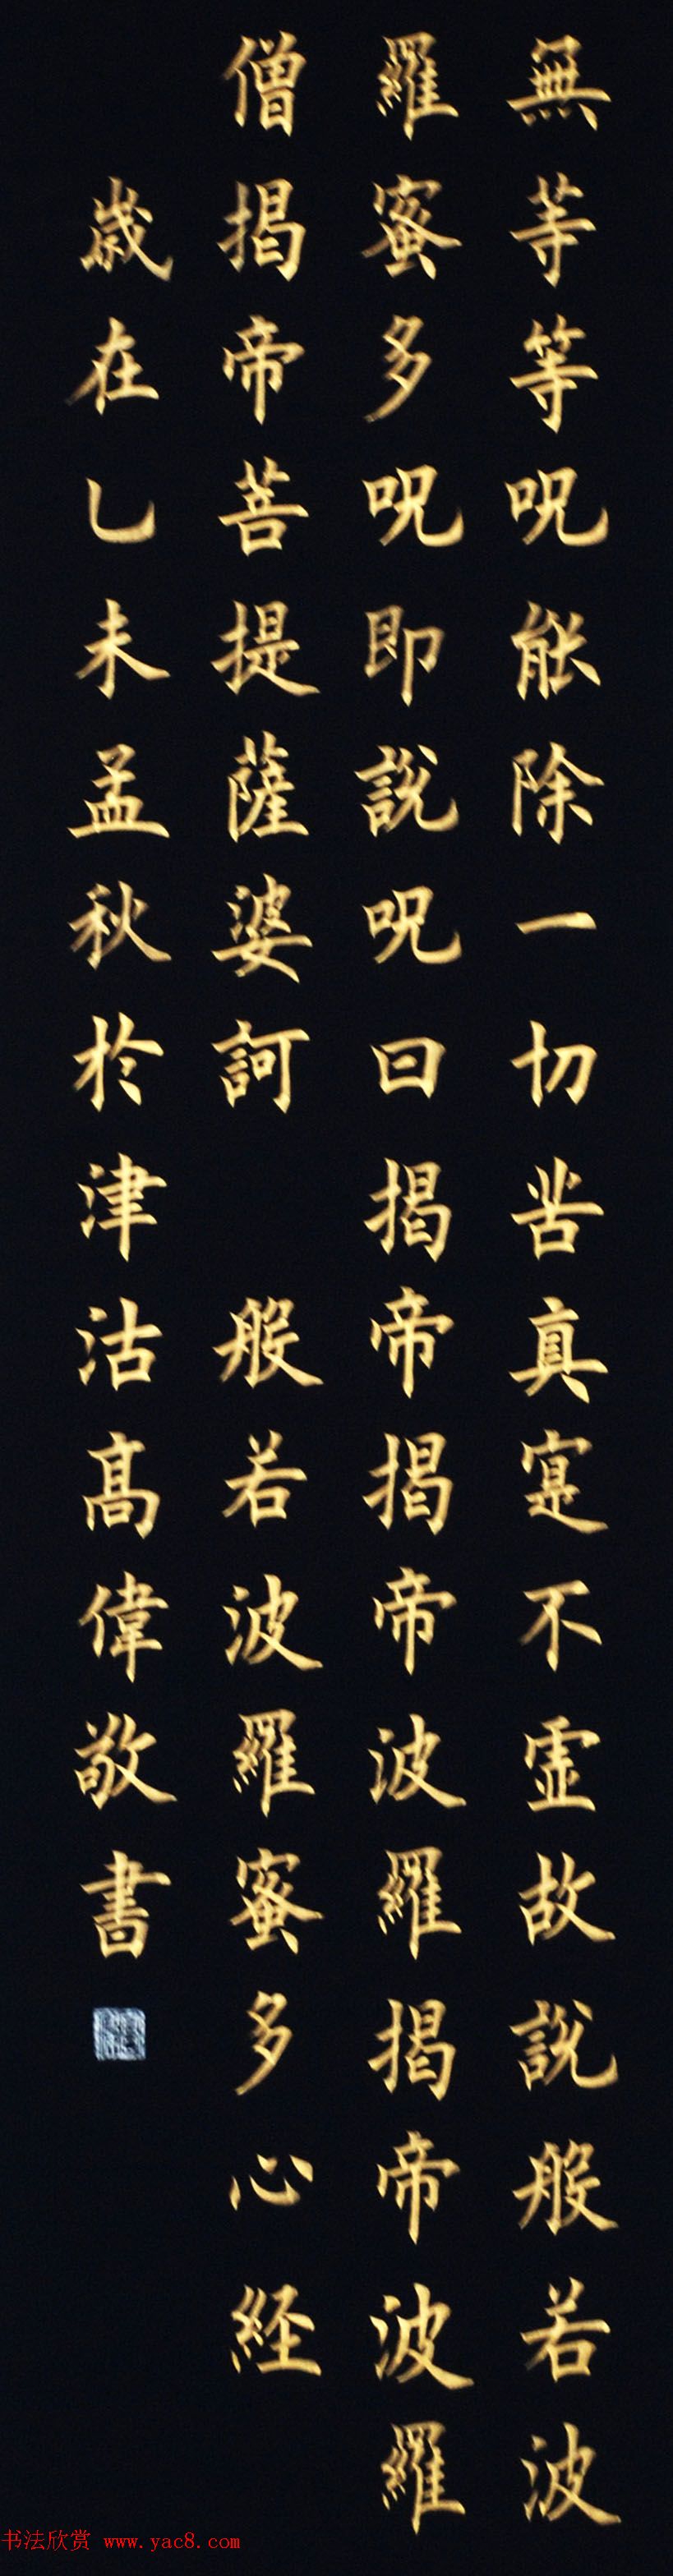 無等等呪能除一切苦真寔不虛故說般若波
羅蜜多呪即說呪曰揭帝揭帝波羅揭帝波羅
僧揭帝菩提薩婆訶 般若波羅蜜多心経
歲在乙未孟秋於津沽高偉敬書
书法欣赏 www.yac8.com